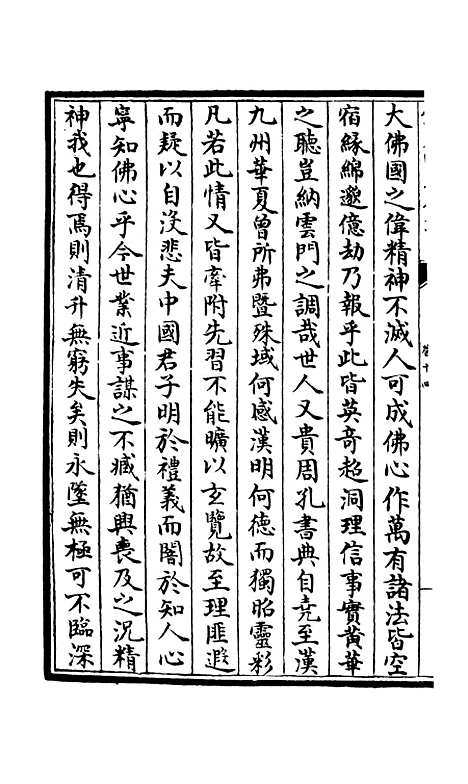 大佛國之偉精神不滅人可成佛心作萬有諸法皆空
宿緣綿邈億劫乃報乎此皆英奇超洞理信事實黃華
之聽豈納雲門之調哉世人又貴周孔書典自堯至漢
九州華夏曾所弗暨殊域何感漢明何德而獨昭靈彩
凡若此情又皆牽附先習不能曠以玄覽故至理匪遐
而疑以自沒悲夫中國君子明於禮義而闇於知人心
寧知佛心乎今世業近事謀之不臧猶興喪及之況精
神我也得焉則清升無窮失矣則永墜無極可不臨深
卷十四